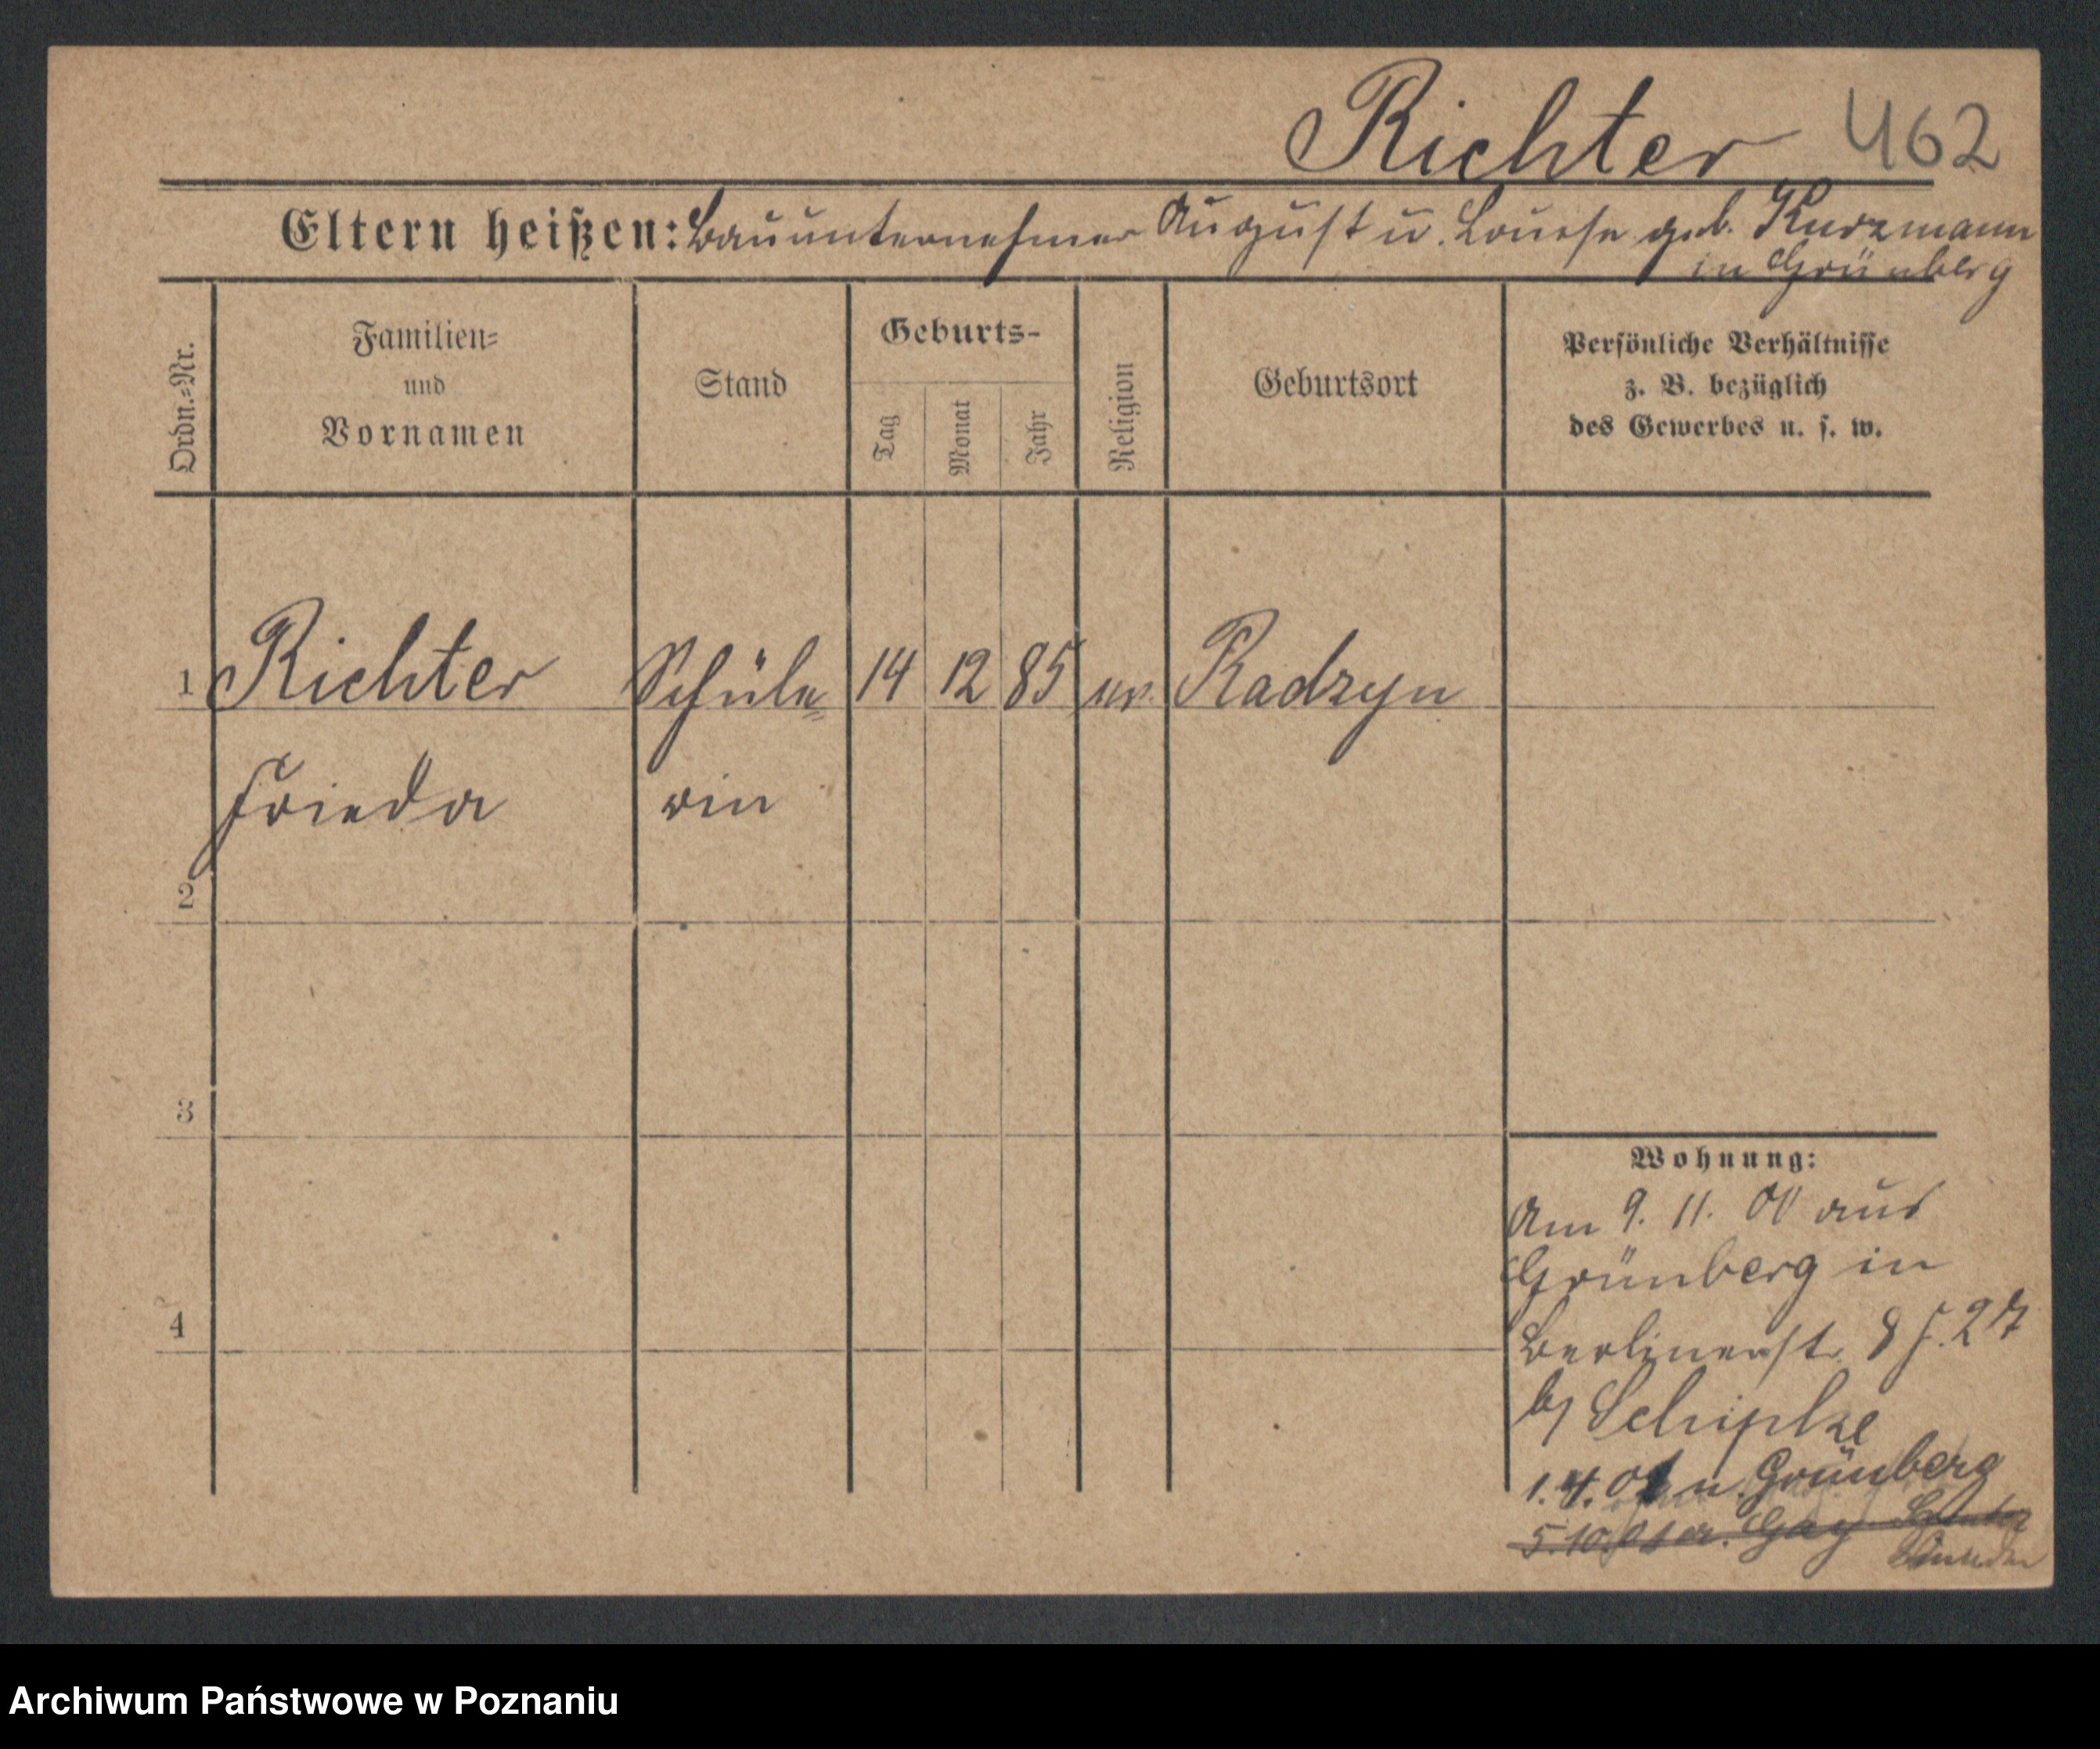 Richter 462
Eltern heißen: Bauunternehmer August u. Louise geb. Kurzmann
in Grünberg
Ordn.=Nr.
Familien=
und
Vornamen
Stand
Geburts-
Tag
Monat
Jahr
Religion
Geburtsort
Persönliche Verhältnisse
z. B. bezüglich
des Gewerbes u. s. w.
1 Richter Schüle= 14 12 85 ev. Radzyn
Frieda rin
2
3
4
Wohnung:
Am 9. 11. 00 aus
Grünberg in
Berlinerstr. 8
b/ Schipke
1. 4. 01 n. Grünberg
5. 10.
Archiwum Państwowe w Poznaniu